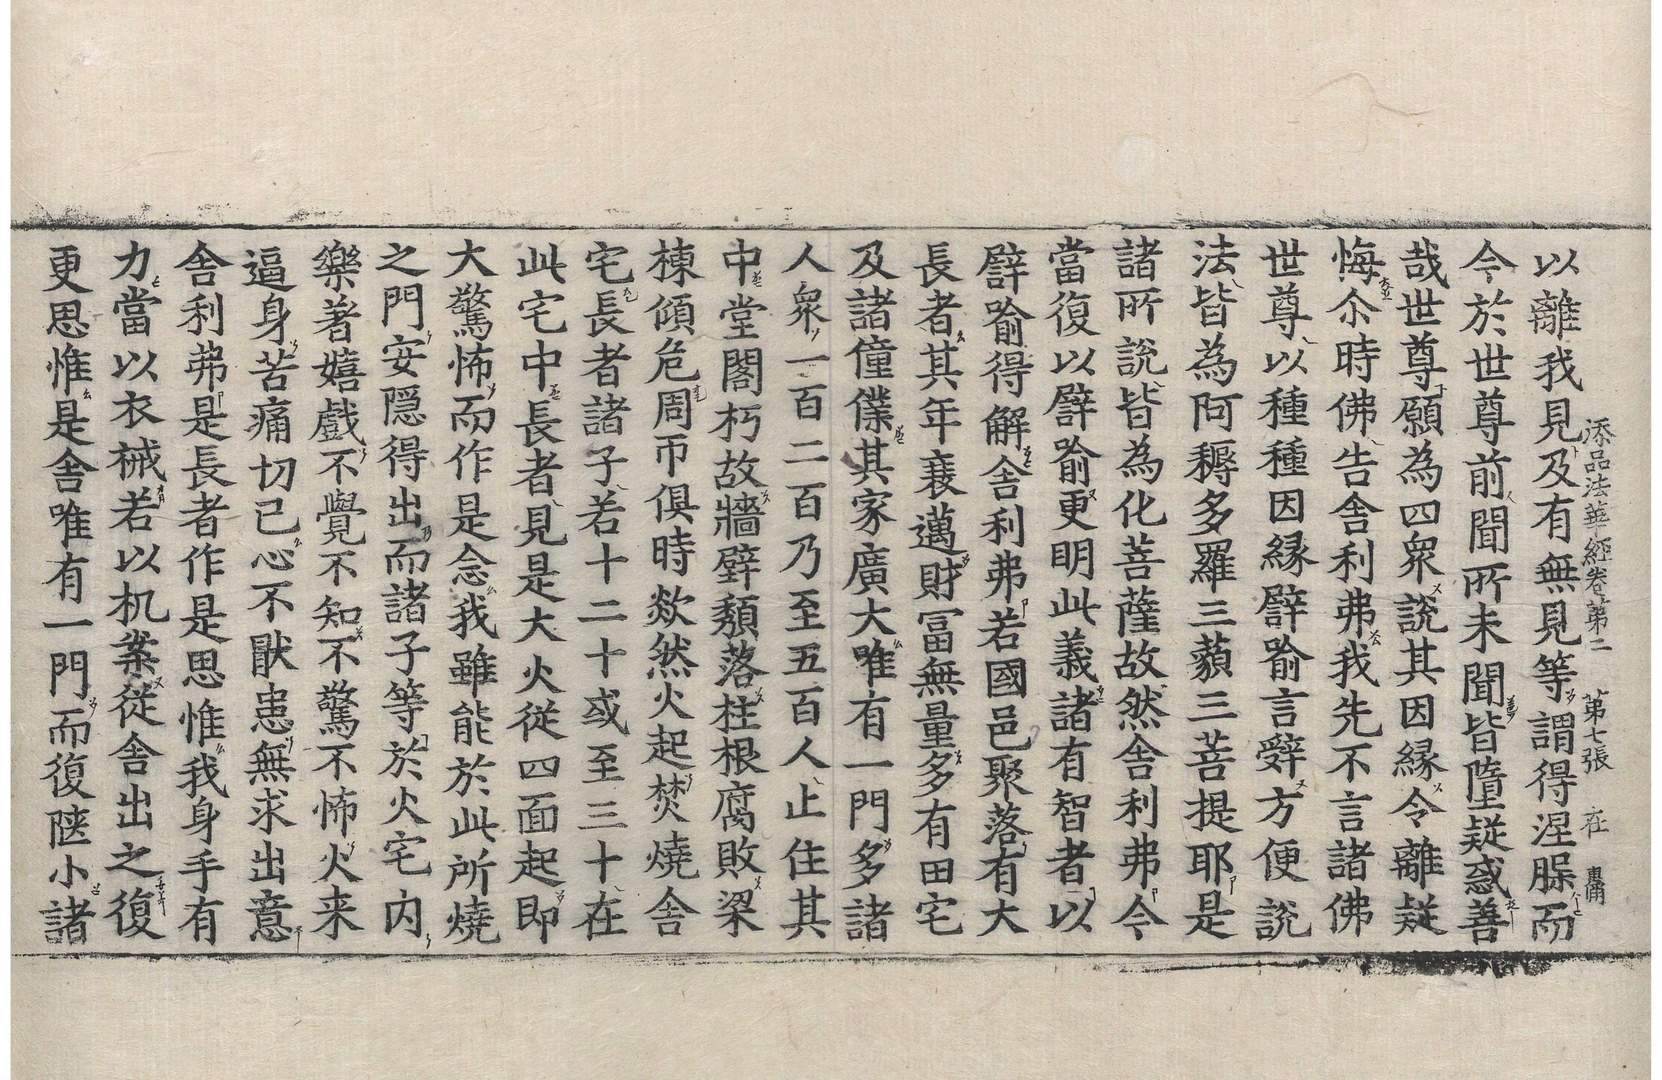 添品法華經卷第二　第七張　在
以離我見及有無見等謂得涅槃而
今於世尊前聞所未聞皆墮疑惑善
哉世尊願為四眾說其因縁令離疑
悔尒時佛告舎利弗我先不言諸佛
世尊以種種因縁譬喻言辤方便說
法皆為阿耨多羅三藐三菩提耶是
諸所說皆為化菩薩故然舎利弗今
當復以譬喻更明此義諸有智者以
譬喻得解舎利弗若國邑聚落有大
長者其年衰邁財冨無量多有田宅
及諸僮僕其家廣大唯有一門多諸
人眾一百二百乃至五百人止住其
中堂閣朽故牆壁頽落柱根腐敗梁
棟傾危周帀俱時欻然火起焚燒舎
宅長者諸子若十二十或至三十在
此宅中長者見是大火従四面起即
大驚怖而作是念我雖能於此所燒
之門安隠得出而諸子等於火宅内
樂著嬉戲不覺不知不驚不怖火来
逼身苦痛切已心不猒患無求出意
舎利弗是長者作是思惟我身手有
力當以衣裓若以机案従舎出之復
更思惟是舎唯有一門而復陿小諸